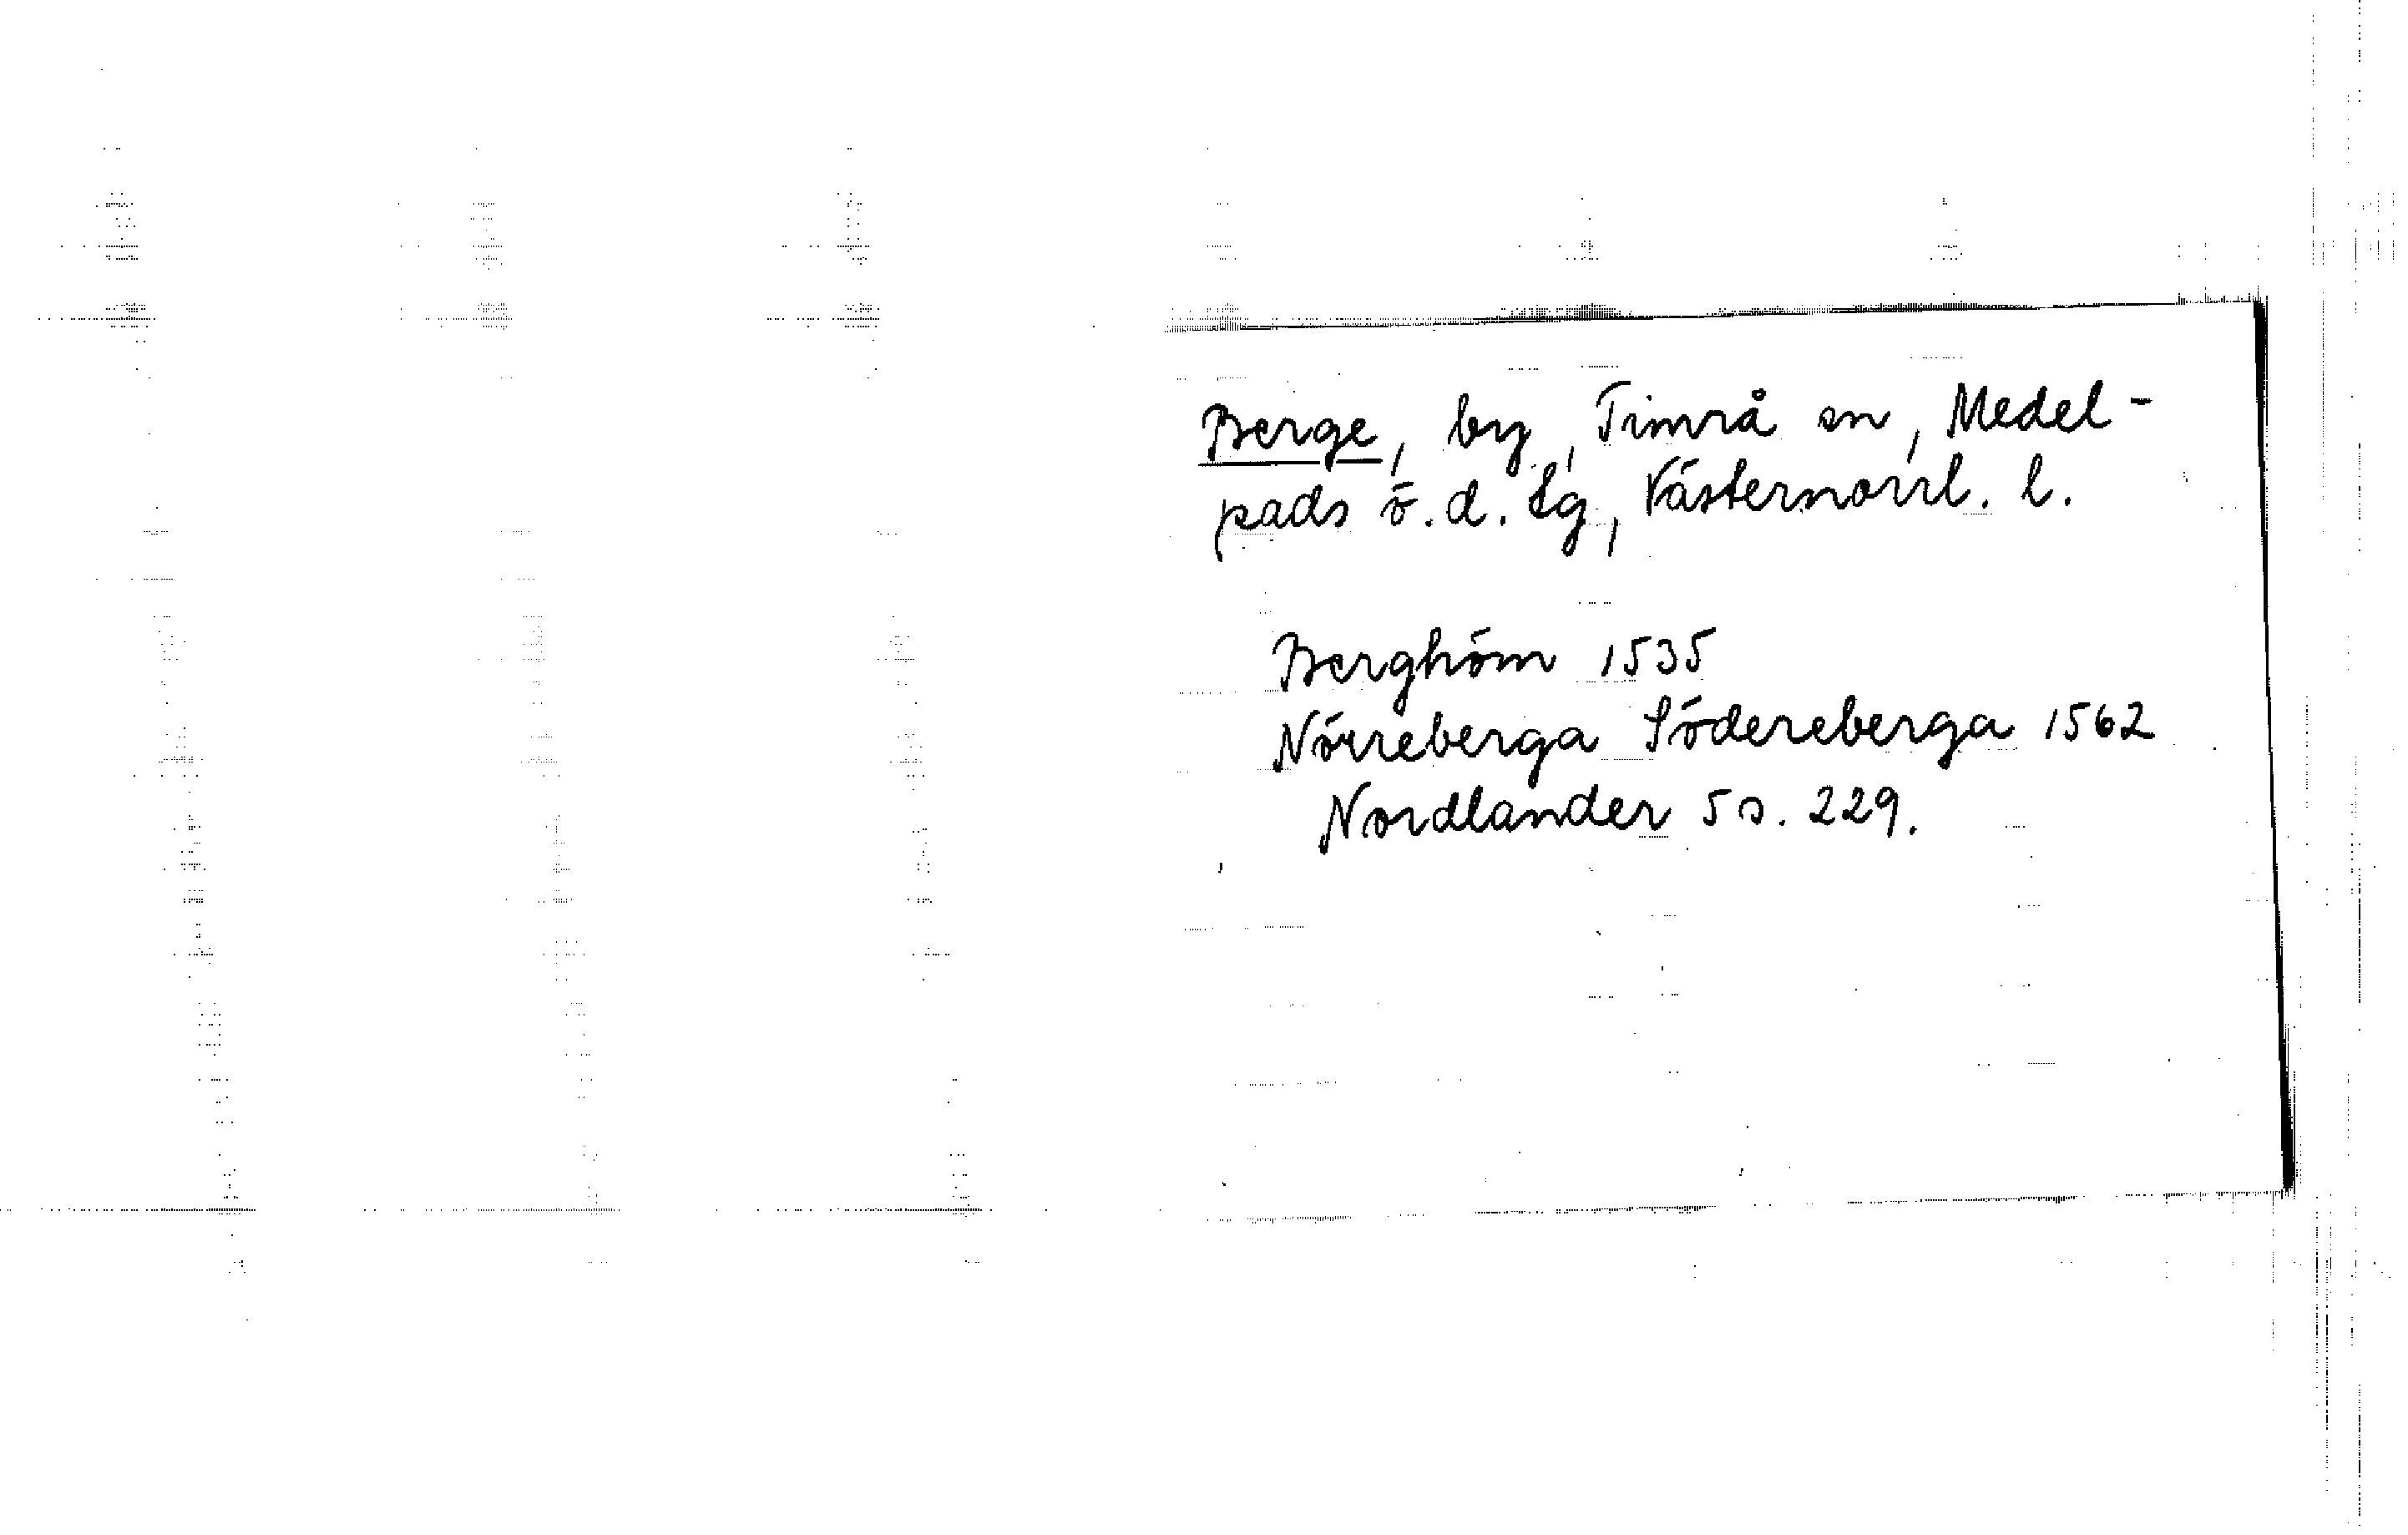 Berge, by, Timrå sn, Medel-
pads ö. d. tg, Västernorrl. l.
Berghöm 1535
Nörreberga Södereberga 1562
Nordlander 5 s. 229.